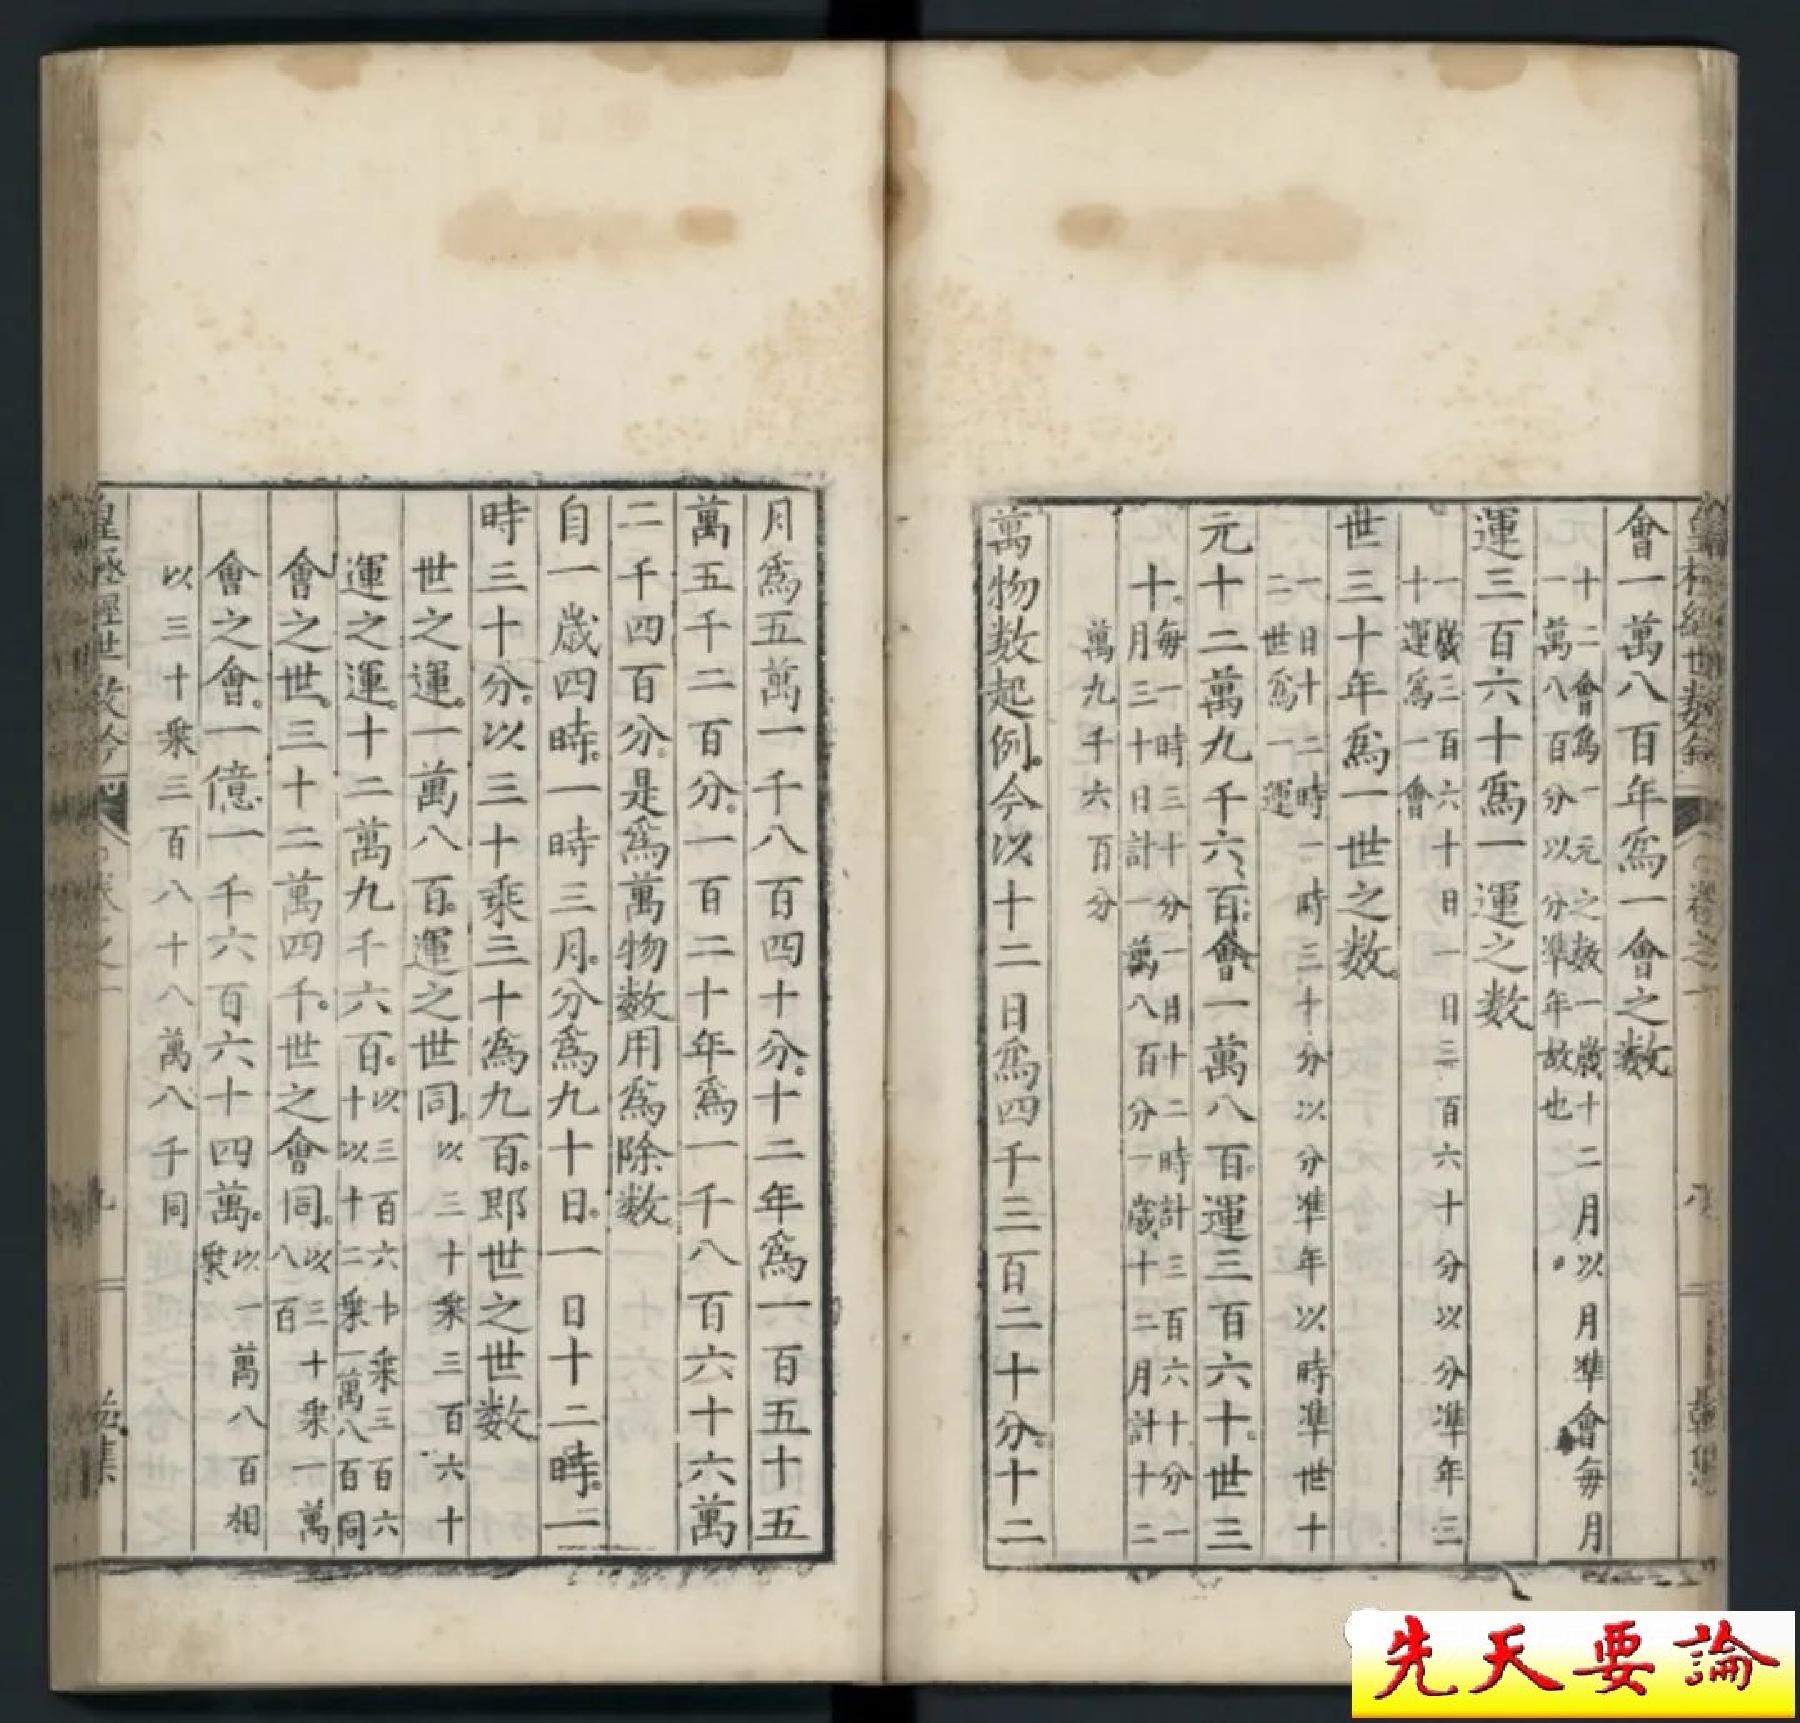 會一萬八百年爲一會之数
十二會爲一元之数一歲十二月以月凖會每月
一萬八百分以分凖年故也
運三百六十爲一運之数
一歲三百六十日一日三百六十分以分凖年三
十運爲一會
世三十年爲一世之数
一日十二時一時三十分以分凖年以時凖世十
二世爲一運
元十二萬九千六百會一萬八百運三百六十世三
十每一時三十分一日十二時計三百六十分一
月三十日計一萬八百分一歲十二月計十二
萬九千六百分
萬物数起例今以十二日爲四千三百二十分十二
月爲五萬一千八百四十分十二年爲一百五十五
萬五千二百分一百二十年爲一千八百六十六萬
二千四百分是爲萬物数用爲除数
自一歲四時一時三月分爲九十日一日十二時二
時三十分以三十乘三十爲九百即世之世数
世之運一萬八百運之世同以三十乘三百六十
運之運十二萬九千六百以三百六十乘三百六
十以十二乘一萬八百同
會之世三十二萬四千世之會同以三十乘一萬
八百
會之會一億一千六百六十四萬以一萬八百相
乘
以三十乘三百八十八萬八千同
先天要論